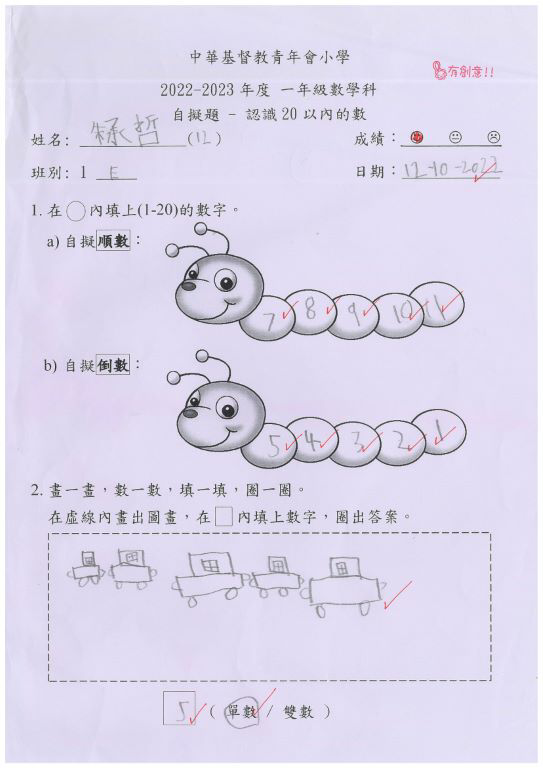 中華基督教青年會小學
有創意!!
2022-2023 年度 一年級數學科
自擬題 – 認識 20 以內的數
姓名: 承哲 (12) 成績:
班別: 1 E 日期: 12-10-2022
1. 在○內填上(1-20)的數字。
a) 自擬順數:
7 8 9 10 11
b) 自擬倒數:
5 4 3 2 1
2. 畫一畫,數一數,填一填,圈一圈。
在虛線內畫出圖畫,在□內填上數字,圈出答案。
5 ( 單數 / 雙數 )